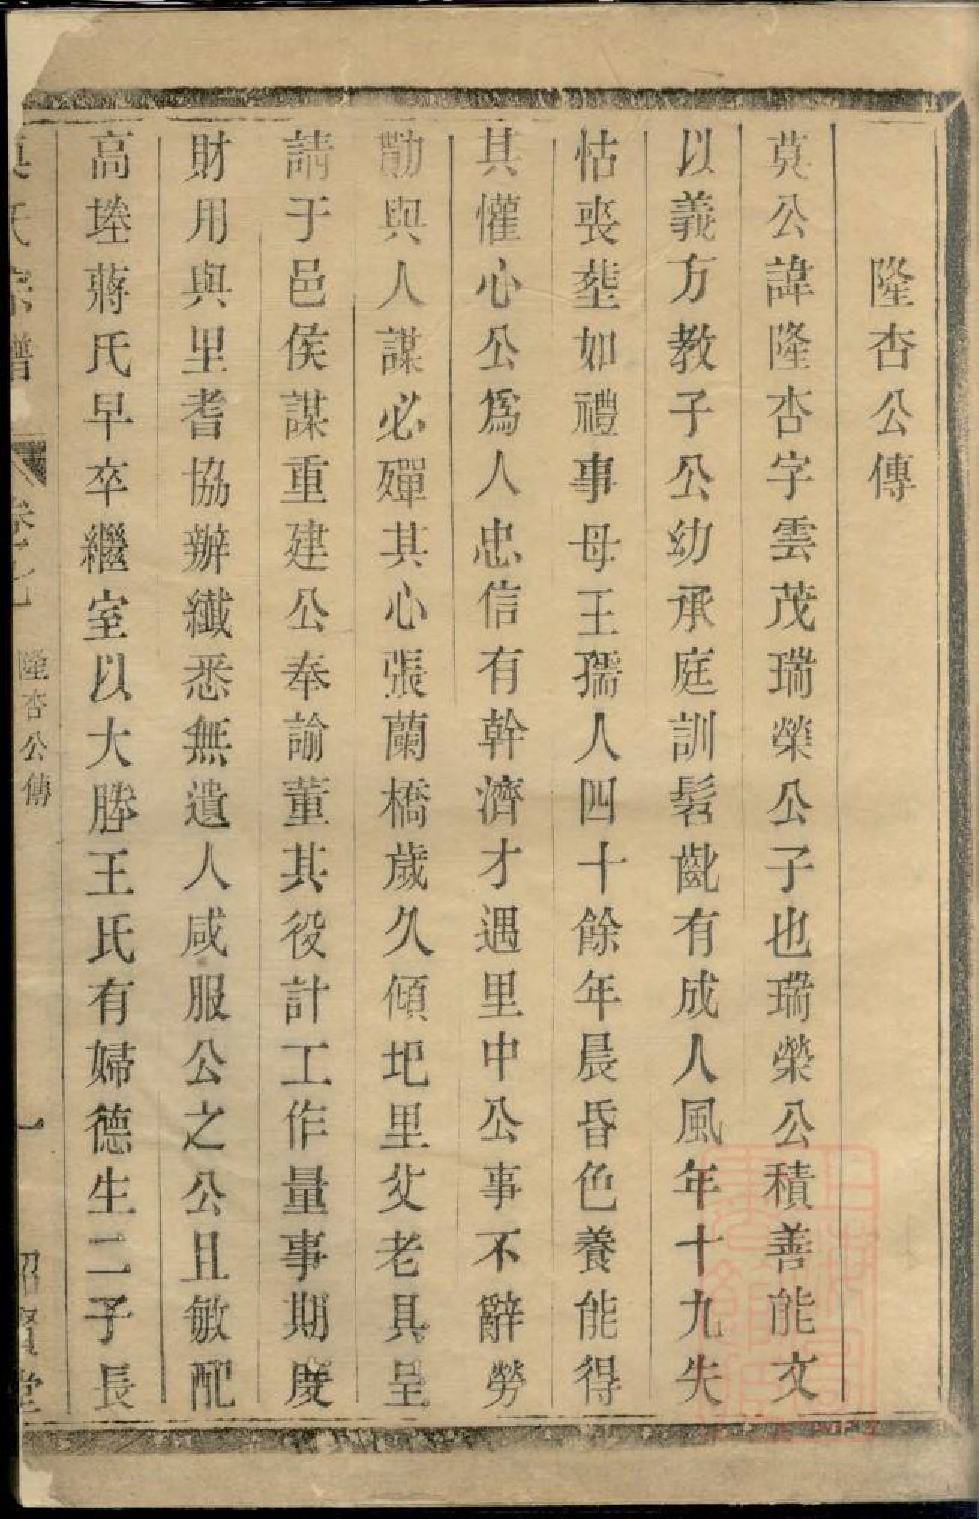 隆杏公傳
莫公諱隆杏字雲茂瑞榮公子也瑞榮公積善能文
以義方教子公幼承庭訓髫齔有成人風年十九失
怙喪塟如禮事母王孺人四十餘年晨昏色養能得
其懽心公爲人忠信有幹濟才遇里中公事不辭勞
勩與人謀必殫其心張蘭橋歲久傾圯里父老具呈
請于邑侯謀重建公奉諭董其役計工作量事期慶
財用與里耆協辦纖悉無遺人咸服公之公且敏配
高埄蔣氏早卒繼室以大勝王氏有婦德生二子長
莫氏宗譜
卷之七
隆杏公傳
一
堂